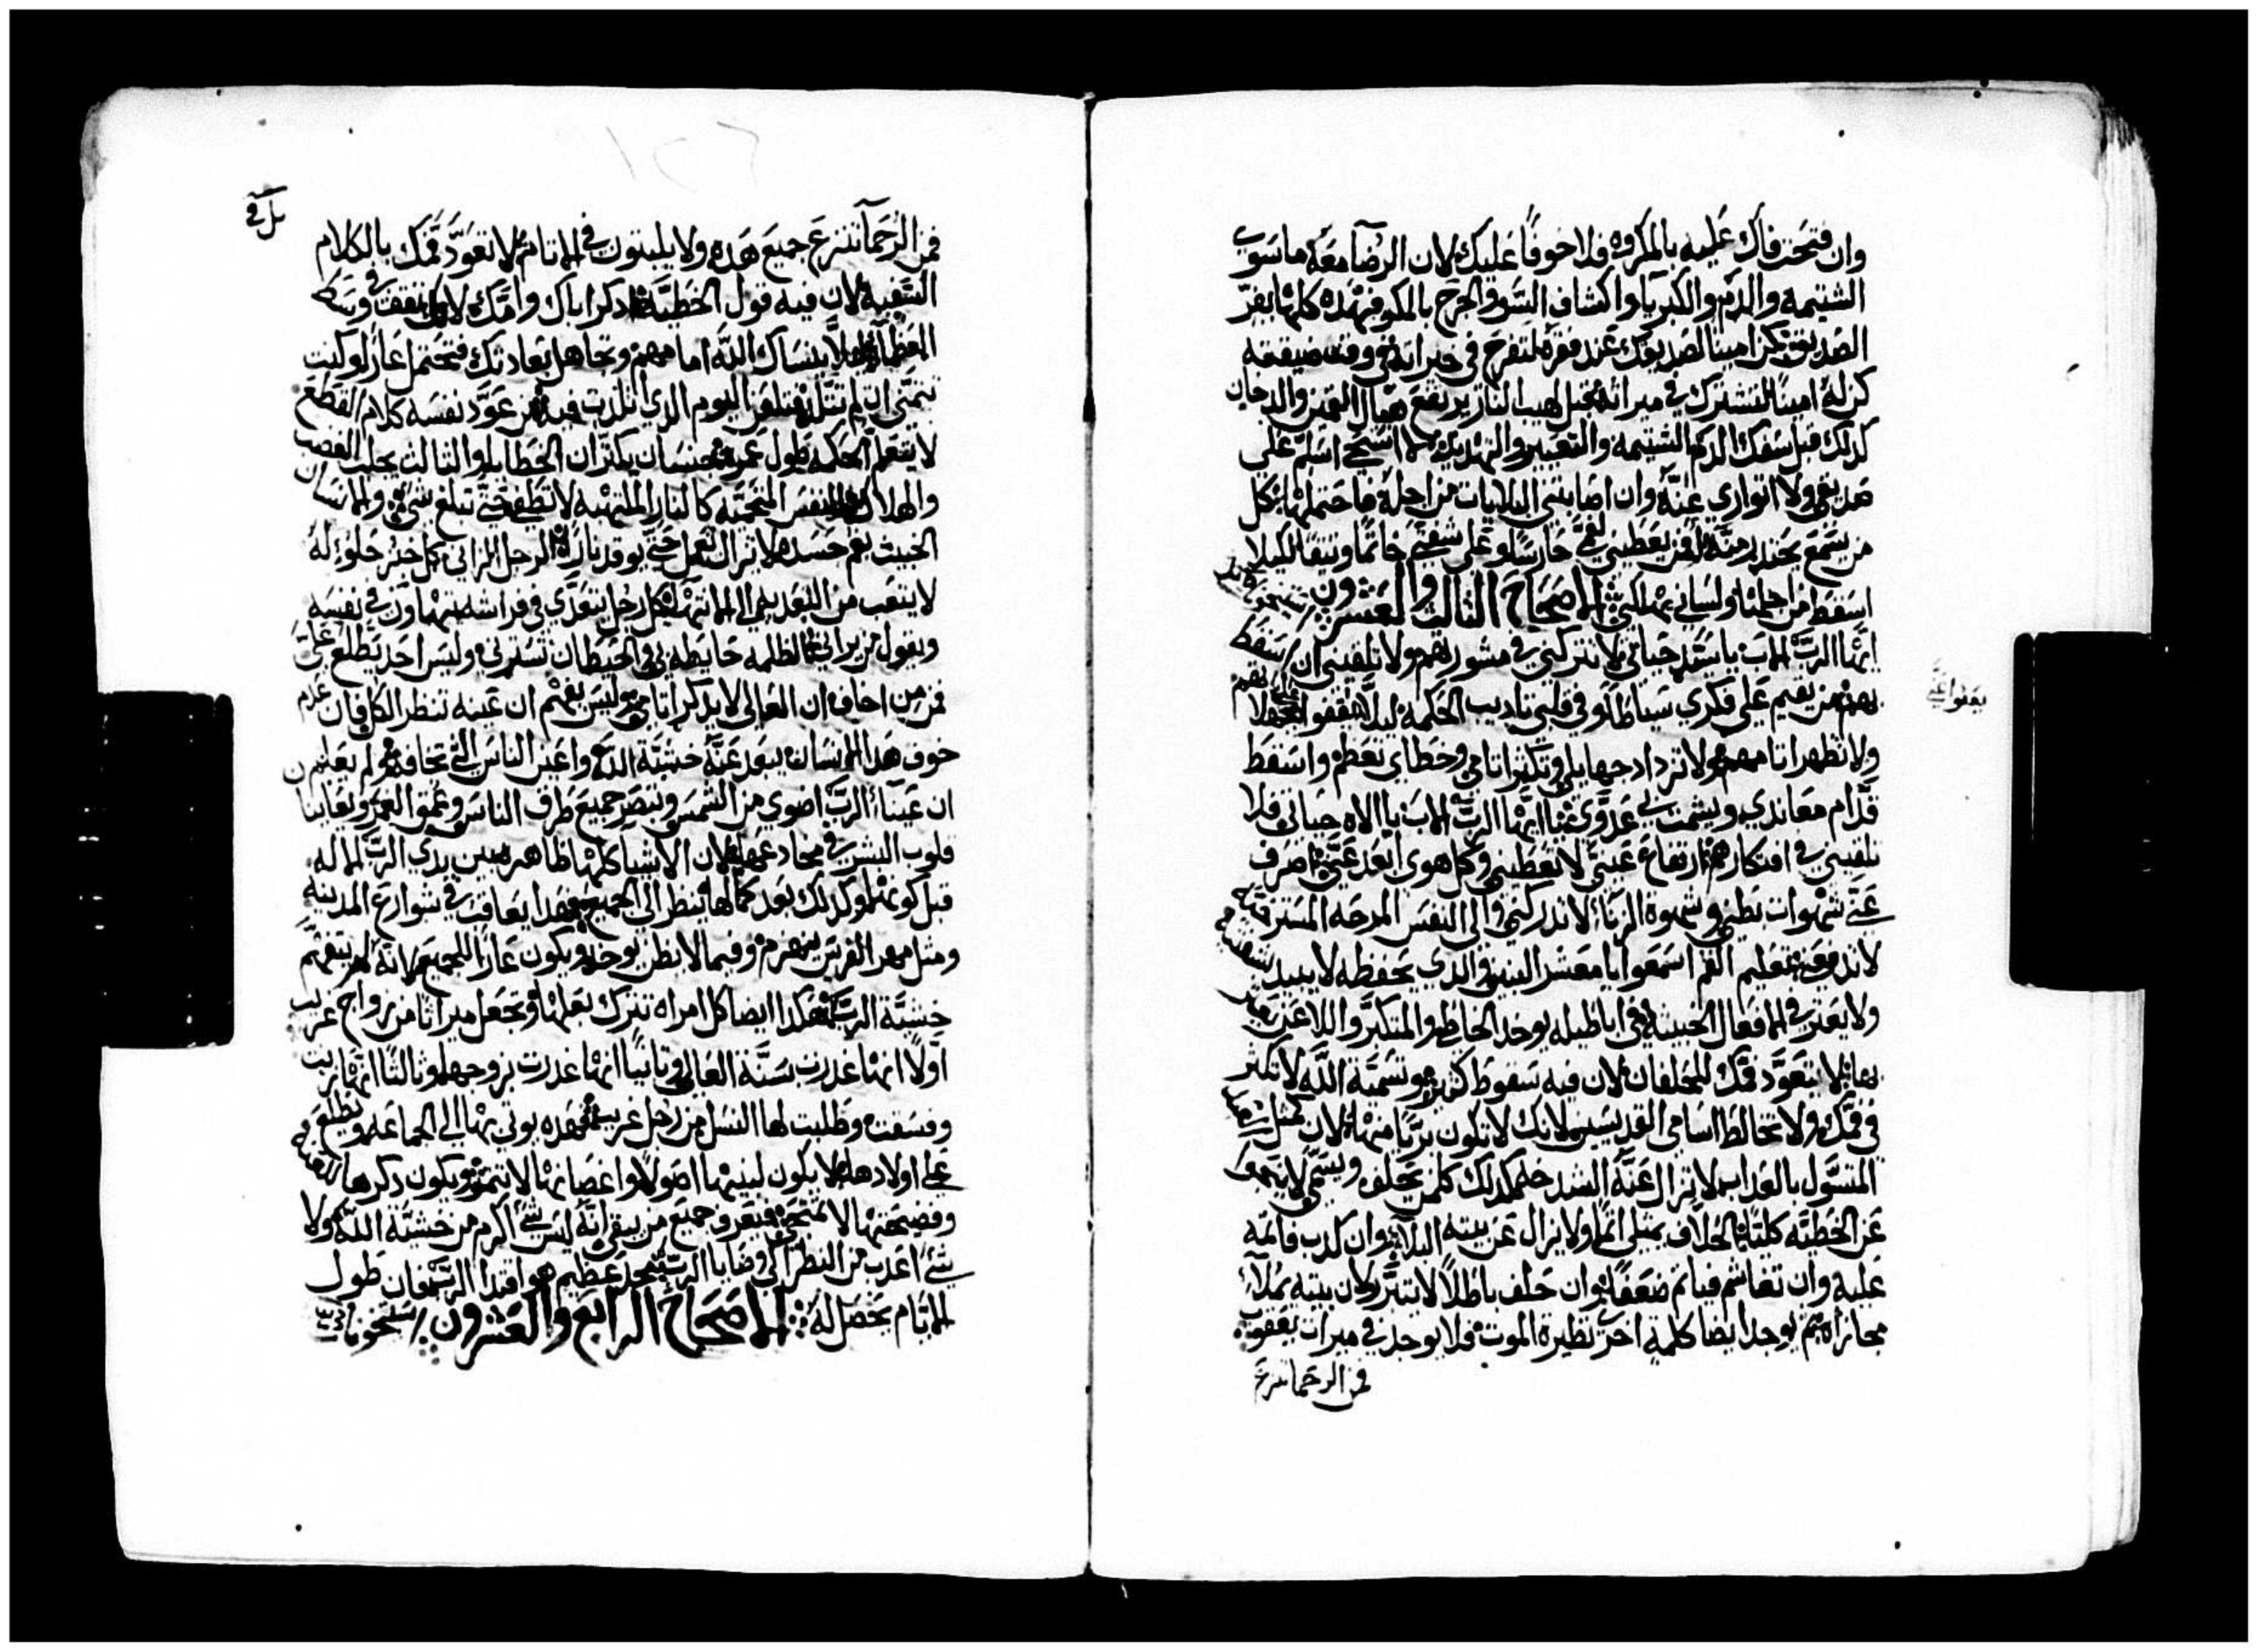 وان فتحت فاك عليه بالمكروه فلا خوفًا عليك لان الرضا معه ما سوى
الشتيمه والذم والكبريا واكشاف السر والجرح بالمكر فهذه كلها يفر
الصديق كن امينا لصديقك عند فقره لتفرح في خيراته في وقت ضيقته
كن له امينا لتشترك في ميراثه قبل لهيب النار يرتفع القمين والدخان
كدلك قبل سفك الدم الشتيمه والتعيير والتهديد لا استحي اسلم على
صديقي ولا اتوارى عنه وان اصابتني البلايات من اجله فاحتملها كل
من يسمع يحذر منه فمن يعطيني لفمي حارسًا وعلى شفتي خاتمًا وثيقًا لكيلا
اسقط من اجلها ولساني يهلكني الاصحاح الثالث والعشرون
ايها الرب الاب يا سيد حياتي لا تتركني في مشورتهم ولا تلقيني ان اسقط
بهم من يقيم على فكري سياطا وفي قلبي تاديب الحكمه ليلا
ولا تظهر اتامهم ولا تزداد جهايلي وتكثر اتامي وخطاياي تعظم واسقط
قدام معاندي ويشمت بي عدوي ايها الرب الاب يا الاه حياتي فلا
تلقيني في افتكارهم ارتفاع عيني لا تعطيني وكل هوى ابعد عني اصرف
عني شهوات بطني وشهوة الزنا لا تدركني والى النفس
لا تدفعني تعليم الفم اسمعوا يا معشر البنين والدي يحفظه لا يبيد
ولا يعثر في الافعال الخبيثه في اباطيله يوخد الخاطي والمتكبر واللاعن
بها لا يتعود فمك للحلفان لان فيه سقوط كثير وتسمية الله لا تكثر
في فمك ولا تخالط اسامي القديسين لانك لا تكون بريا منها لان كمثل
المسوّل بالعداب لا يزال عنه الشدخ كدلك كلمن يحلف ويسمي لا ينجوا
عن الخطيه كليًا الحلاف يمتلي اثمًا ولا يزال عن بيته البلا وان كدب فاثمه
عليه وان تغاشم فياثم ضعفًا وان حلف باطلًا لا يتبرر لان بيته يملا
مجازاه يوجد ايضا كلمه اخرى نظيرة الموت فلا يوجد في ميراث يعقوب
فمن الرحما تنزع
فمن الرحما تنزع جميع هده ولا يلبتون في الاتام لا تعوّد فمك بالكلام
السفيه لان فيه قول الخطيه ادكر اباك وامك لانك تقف في وسط
العظما ليلا ينساك الله امامهم وتجاهل بعادتك فتحتمل عارًا وكنت
تتمنى ان لم تتولد وتلعن اليوم الدي اتلدت فيه من عوّد نفسه كلام القطع
لا يتعلم الحكمه طول عمره جنسان يكتران الخطايا والتالت يجلب الغضب
والهلاك النفس المحميه كالنار الملتهبه لا تطفي حتى تبلغ شي والانسان
الخبيت بفم جسده لا يزال يعمل حتى يوقد نارًا الرجل الزاني كل خبز حلو له
لا يتعب من التعدي الى الانتها كل رجل يتعدى في فراشه يتهاون في نفسه
ويقول من يراني الظلمه حايطه بي والحيطان تسترني وليس احد يطلع علي
فمن من اخاف ان العالي لا يدكر اتامي وليس يفهم ان عينه تنظر الكل فان
خوف هدا الانسان يبعد عنه خشية الله واعين الناس التي تخافه ولم يعلم
ان عينا الرب اضوي من الشمس وتبصر جميع طرف الناس وعمق الغمر وتعاينا
قلوب البشر في مخادعها لان الاشيا كلها ظاهره بين يدي الرب الاله
قبل كونها وكدلك بعد كمالها ينظر الى الجميع فهدا يعاقب في شوارع المدينه
ومثل مهر الفرس ينهزم وفيما لا يظن يوخد ويكون عارًا للجميع لانه لم يتفهم
خشية الرب هكدا ايضا كل امراه تترك بعلها وتجعل ميراتا من زواج غريب
اولًا انها غدرت سنة العالي وتانيًا انها غدرت بزوجها وتالتًا انها زنت
وفسقت وطلبت لها النسل من رجل غريب فهده يوتى بها الى الجماعه ويطلع
على اولادها لا يكون لبنيها اصولًا واغصانها لا تتمر ويكون دكرها للعنه
وفضيحتها لا تمتحى فيعرف جميع من يبقى انه ليس شي اكرم من خشية الله ولا
شي اعدب من النظر الى وصايا الرب مجد عظيم هو اقتدا الرب فان طول
الايام يحصل له الاصحاح الرابع والعشرون